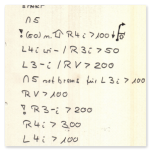 ∩5
! (60) m. R4i > 100
L4i w- / R3i > 50
L3-i / RV > 200
∩5 not brems für L3i > 100
RV > 100
? R3-i > 200
R4i > 300
L4i > 100